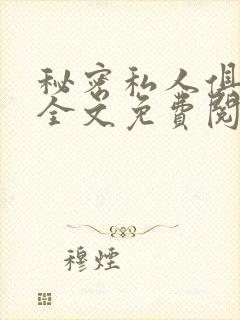 秘密私人俱
全文免費閱
穆煙